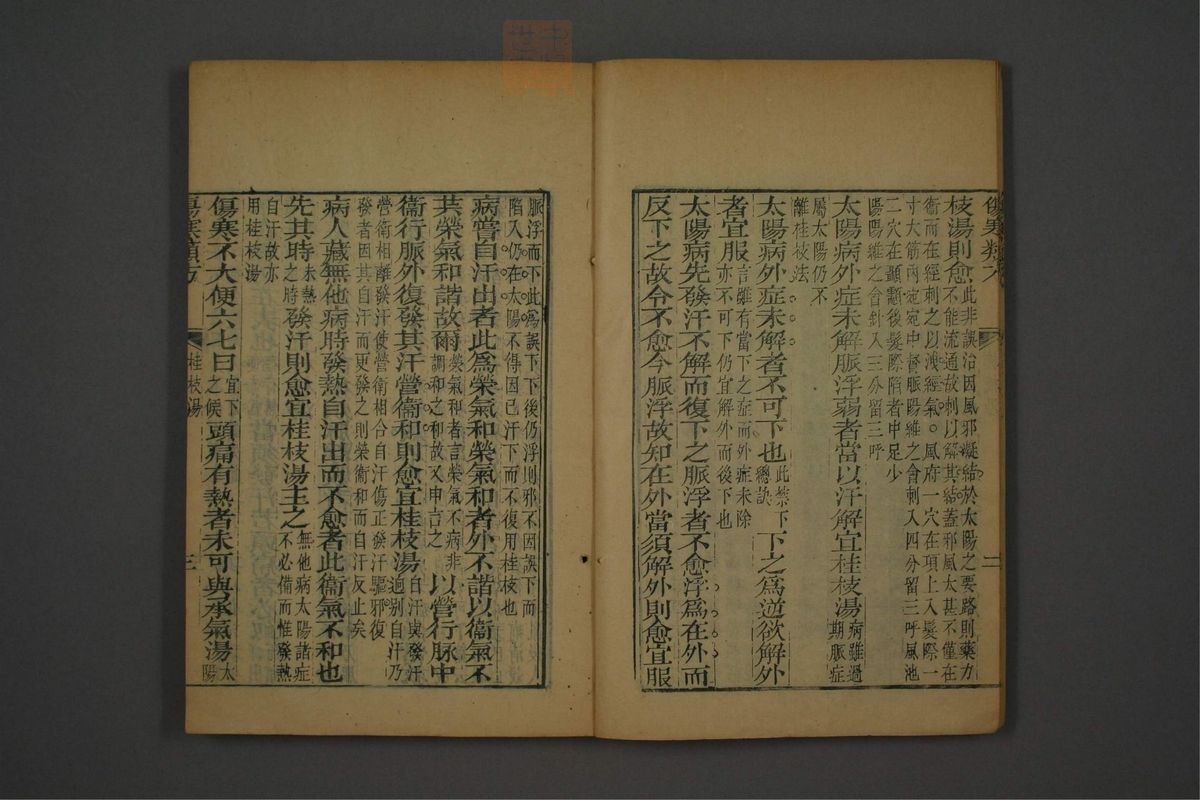 傷寒類方
二
枝湯則愈此非誤治因風邪凝結於太陽之要路則藥力
不能流通故刺之以解其結蓋邪風太甚不僅在
衞而在經刺之以洩經氣風府一穴在項上入髮際一
寸大筋內宛宛中督脈陽維之會刺入四分留三呼風池
二穴在顳顬後髮際陷者中足少
陽陽維之會針入三分留三呼
太陽病外症未解脈浮弱者當以汗解宜桂枝湯病雖過
期脈症
屬太陽仍不
離桂枝法
太陽病外症未解者不可下也此禁下
總訣下之爲逆欲解外
者宜服言雖有當下之症而外症未除
亦不可下仍宜解外而後下也
太陽病先發汗不解而復下之脈浮者不愈浮爲在外而
反下之故令不愈今脈浮故知在外當須解外則愈宜服
脈浮而下此爲誤下下後仍浮則邪不因誤下而
陷入仍在太陽不得因已汗下而不復用桂枝也
病嘗自汗出者此爲榮氣和榮氣和者外不諧以衞氣不
共榮氣和諧故爾榮氣和者言榮氣不病非
調和之和故又申言之以營行脈中
衞行脈外復發其汗營衞和則愈宜桂枝湯自汗與發汗
迥別自汗乃
營衞相離發汗使營衞相合自汗傷正發汗驅邪復
發者因其自汗而更發之則榮衞和而自汗反止矣
病人藏無他病時發熱自汗出而不愈者此衞氣不和也
先其時未熱
之時發汗則愈宜桂枝湯主之無他病太陽諸症
不必備而惟發熱
自汗故亦
用桂枝湯
傷寒不大便六七日宜下
之候頭痛有熱者未可與承氣湯太
陽
傷寒類方
桂枝湯
三